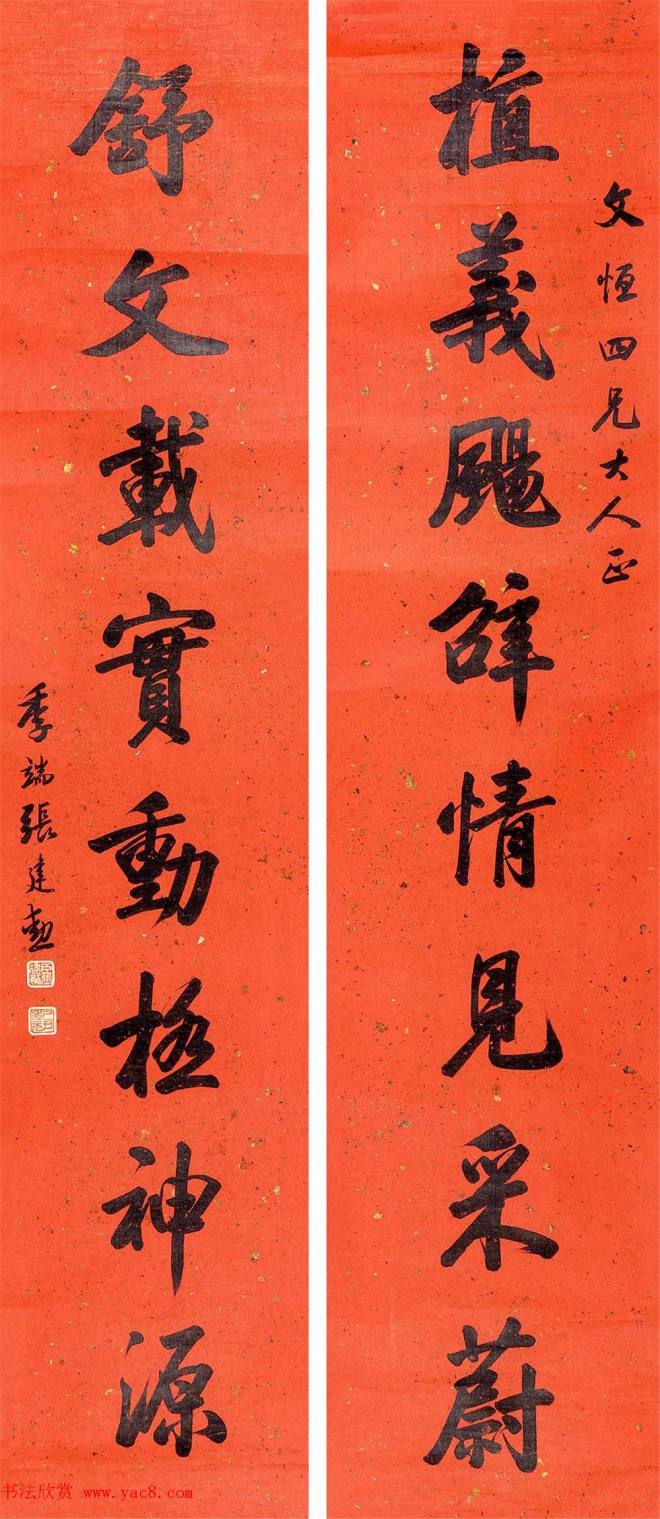 文恒四兄大人正
植義颺辝情見采蔚
舒文載實動極神源
季端張建勳
书法欣赏 www.yac8.com